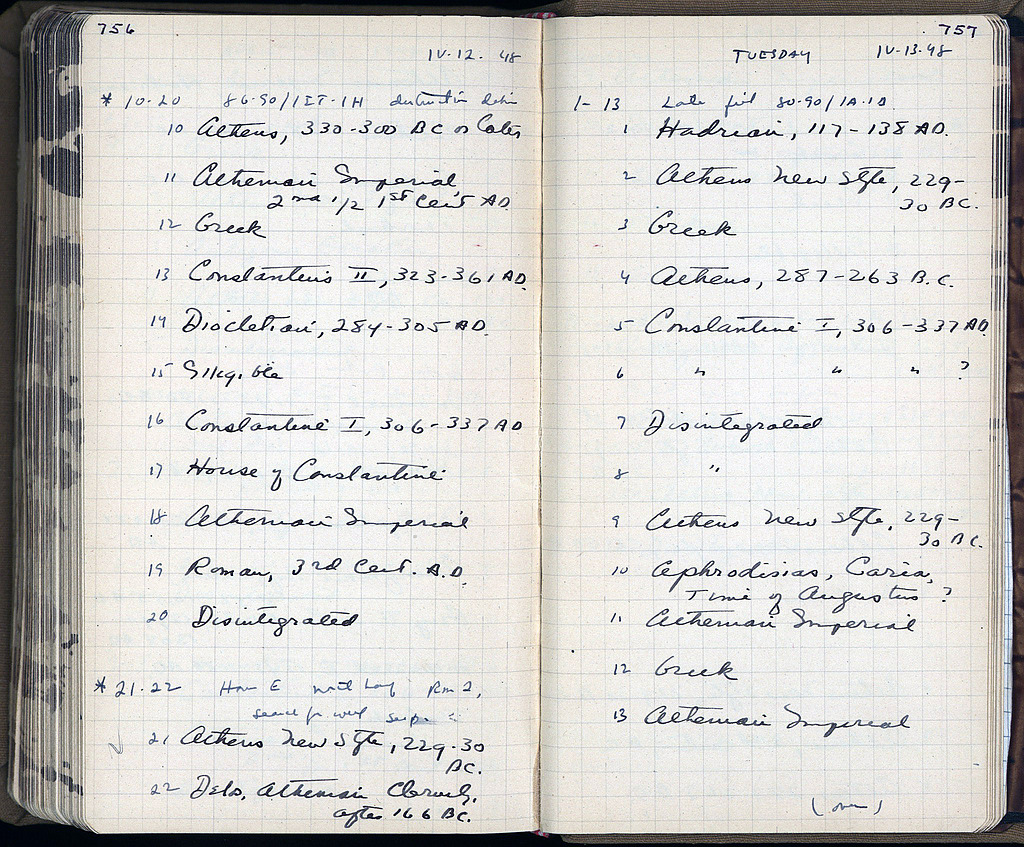 756
IV-12. 48
* 10-20 86-90/1ET-1H destruction debris
10 Athens, 330-300 BC or Later
11 Athenian Imperial,
2nd 1/2 1st Cent AD.
12 Greek
13 Constantius II, 323-361 AD.
14 Diocletian, 284-305 AD.
15 Illegible
16 Constantine I, 306-337 AD
17 House of Constantine
18 Athenian Imperial
19 Roman, 3rd Cent. A.D.
20 Disintegrated
* 21-22 House E Rm 2,
search for well
21 Athens New Style, 229-30
BC.
22 Delos, Athenian Cleruchy,
after 166 BC.
757
TUESDAY IV-13-48
1-13 Late fill 80-90/1A-1D
1 Hadrian, 117-138 AD.
2 Athens New Style, 229-
30 BC.
3 Greek
4 Athens, 287-263 B.C.
5 Constantine I, 306-337 AD.
6 " " " ?
7 Disintegrated
8 "
9 Athens New Style, 229-
30 BC.
10 Aphrodisias, Caria,
Time of Augustus ?
11 Athenian Imperial
12 Greek
13 Athenian Imperial
(over)